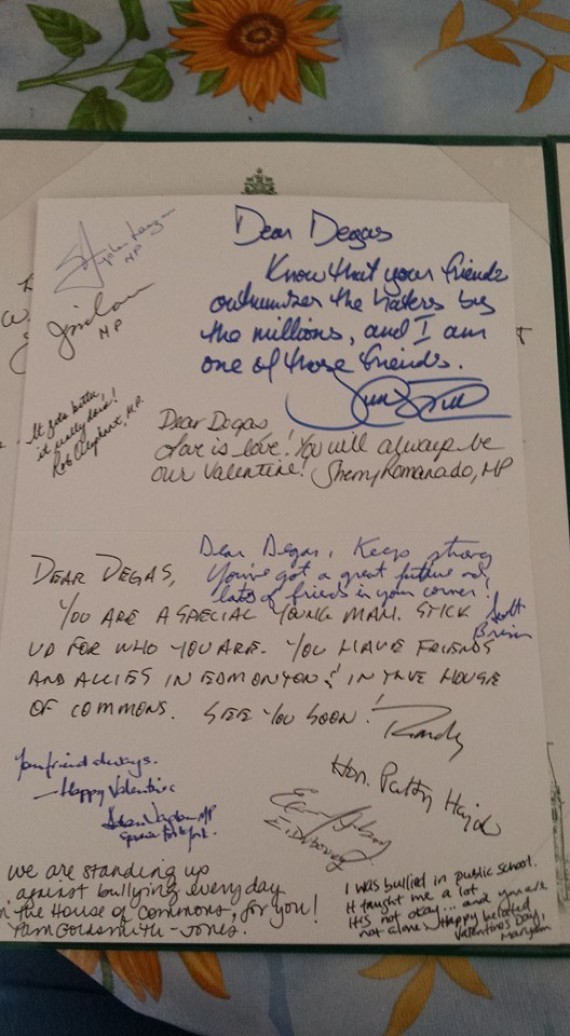 MP
MP
Dear Degas
Know that your friends
outnumber the haters by
the millions, and I am
one of those friends.
It gets better,
it really does!
Rob Oliphant, MP.
Dear Degas
Love is love! You will always be
our Valentine! Sherry Romanado, MP
Dear Degas, Keep strong
You've got a great future and
lots of friends in your corner!
Scott
Brison
DEAR DEGAS,
YOU ARE A SPECIAL YOUNG MAN. STICK
UP FOR WHO YOU ARE. YOU HAVE FRIENDS
AND ALLIES IN EDMONTON & IN THE HOUSE
OF COMMONS. SEE YOU SOON!
Randy
Your friend always.
– Happy Valentine
MP
Hon. Patty Hajdu
we are standing up
against bullying everyday
in the House of Commons, for you!
Pam Goldsmith-Jones.
I was bullied in public school.
It taught me a lot.
It's not okay... and you are
not alone. Happy belated
Valentine's Day,
Maryam